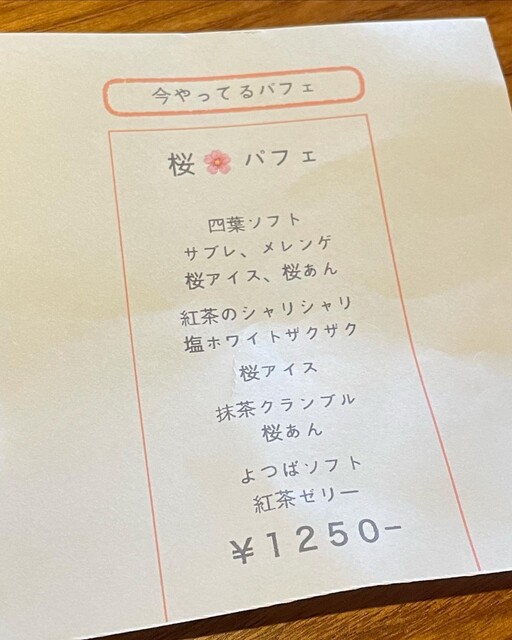 今やってるパフェ
桜🌸パフェ
四葉ソフト
サブレ、メレンゲ
桜アイス、桜あん
紅茶のシャリシャリ
塩ホワイトザクザク
桜アイス
抹茶クランブル
桜あん
よつばソフト
紅茶ゼリー
¥1250-